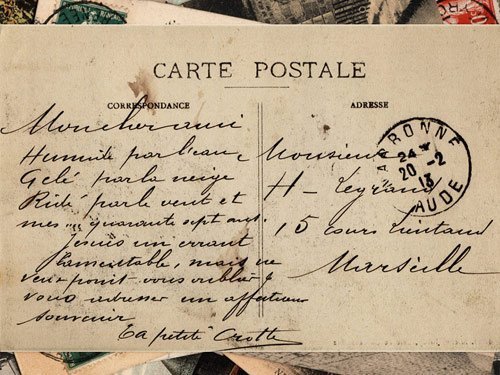 CARTE POSTALE
CORRESPONDANCE
ADRESSE
Mon cher ami
Humide par l'eau
Gelé par la neige
Ridé par le vent et
mes quarante sept ans.
Je suis un errant
lamentable, mais ne
veux point vous oublier &
vous adresser un affectueux
souvenir
Ta petite Crotte
Monsieur
H - Legrand
15 cours
Marseille
NARBONNE
24 *
20 -2
13
AUDE